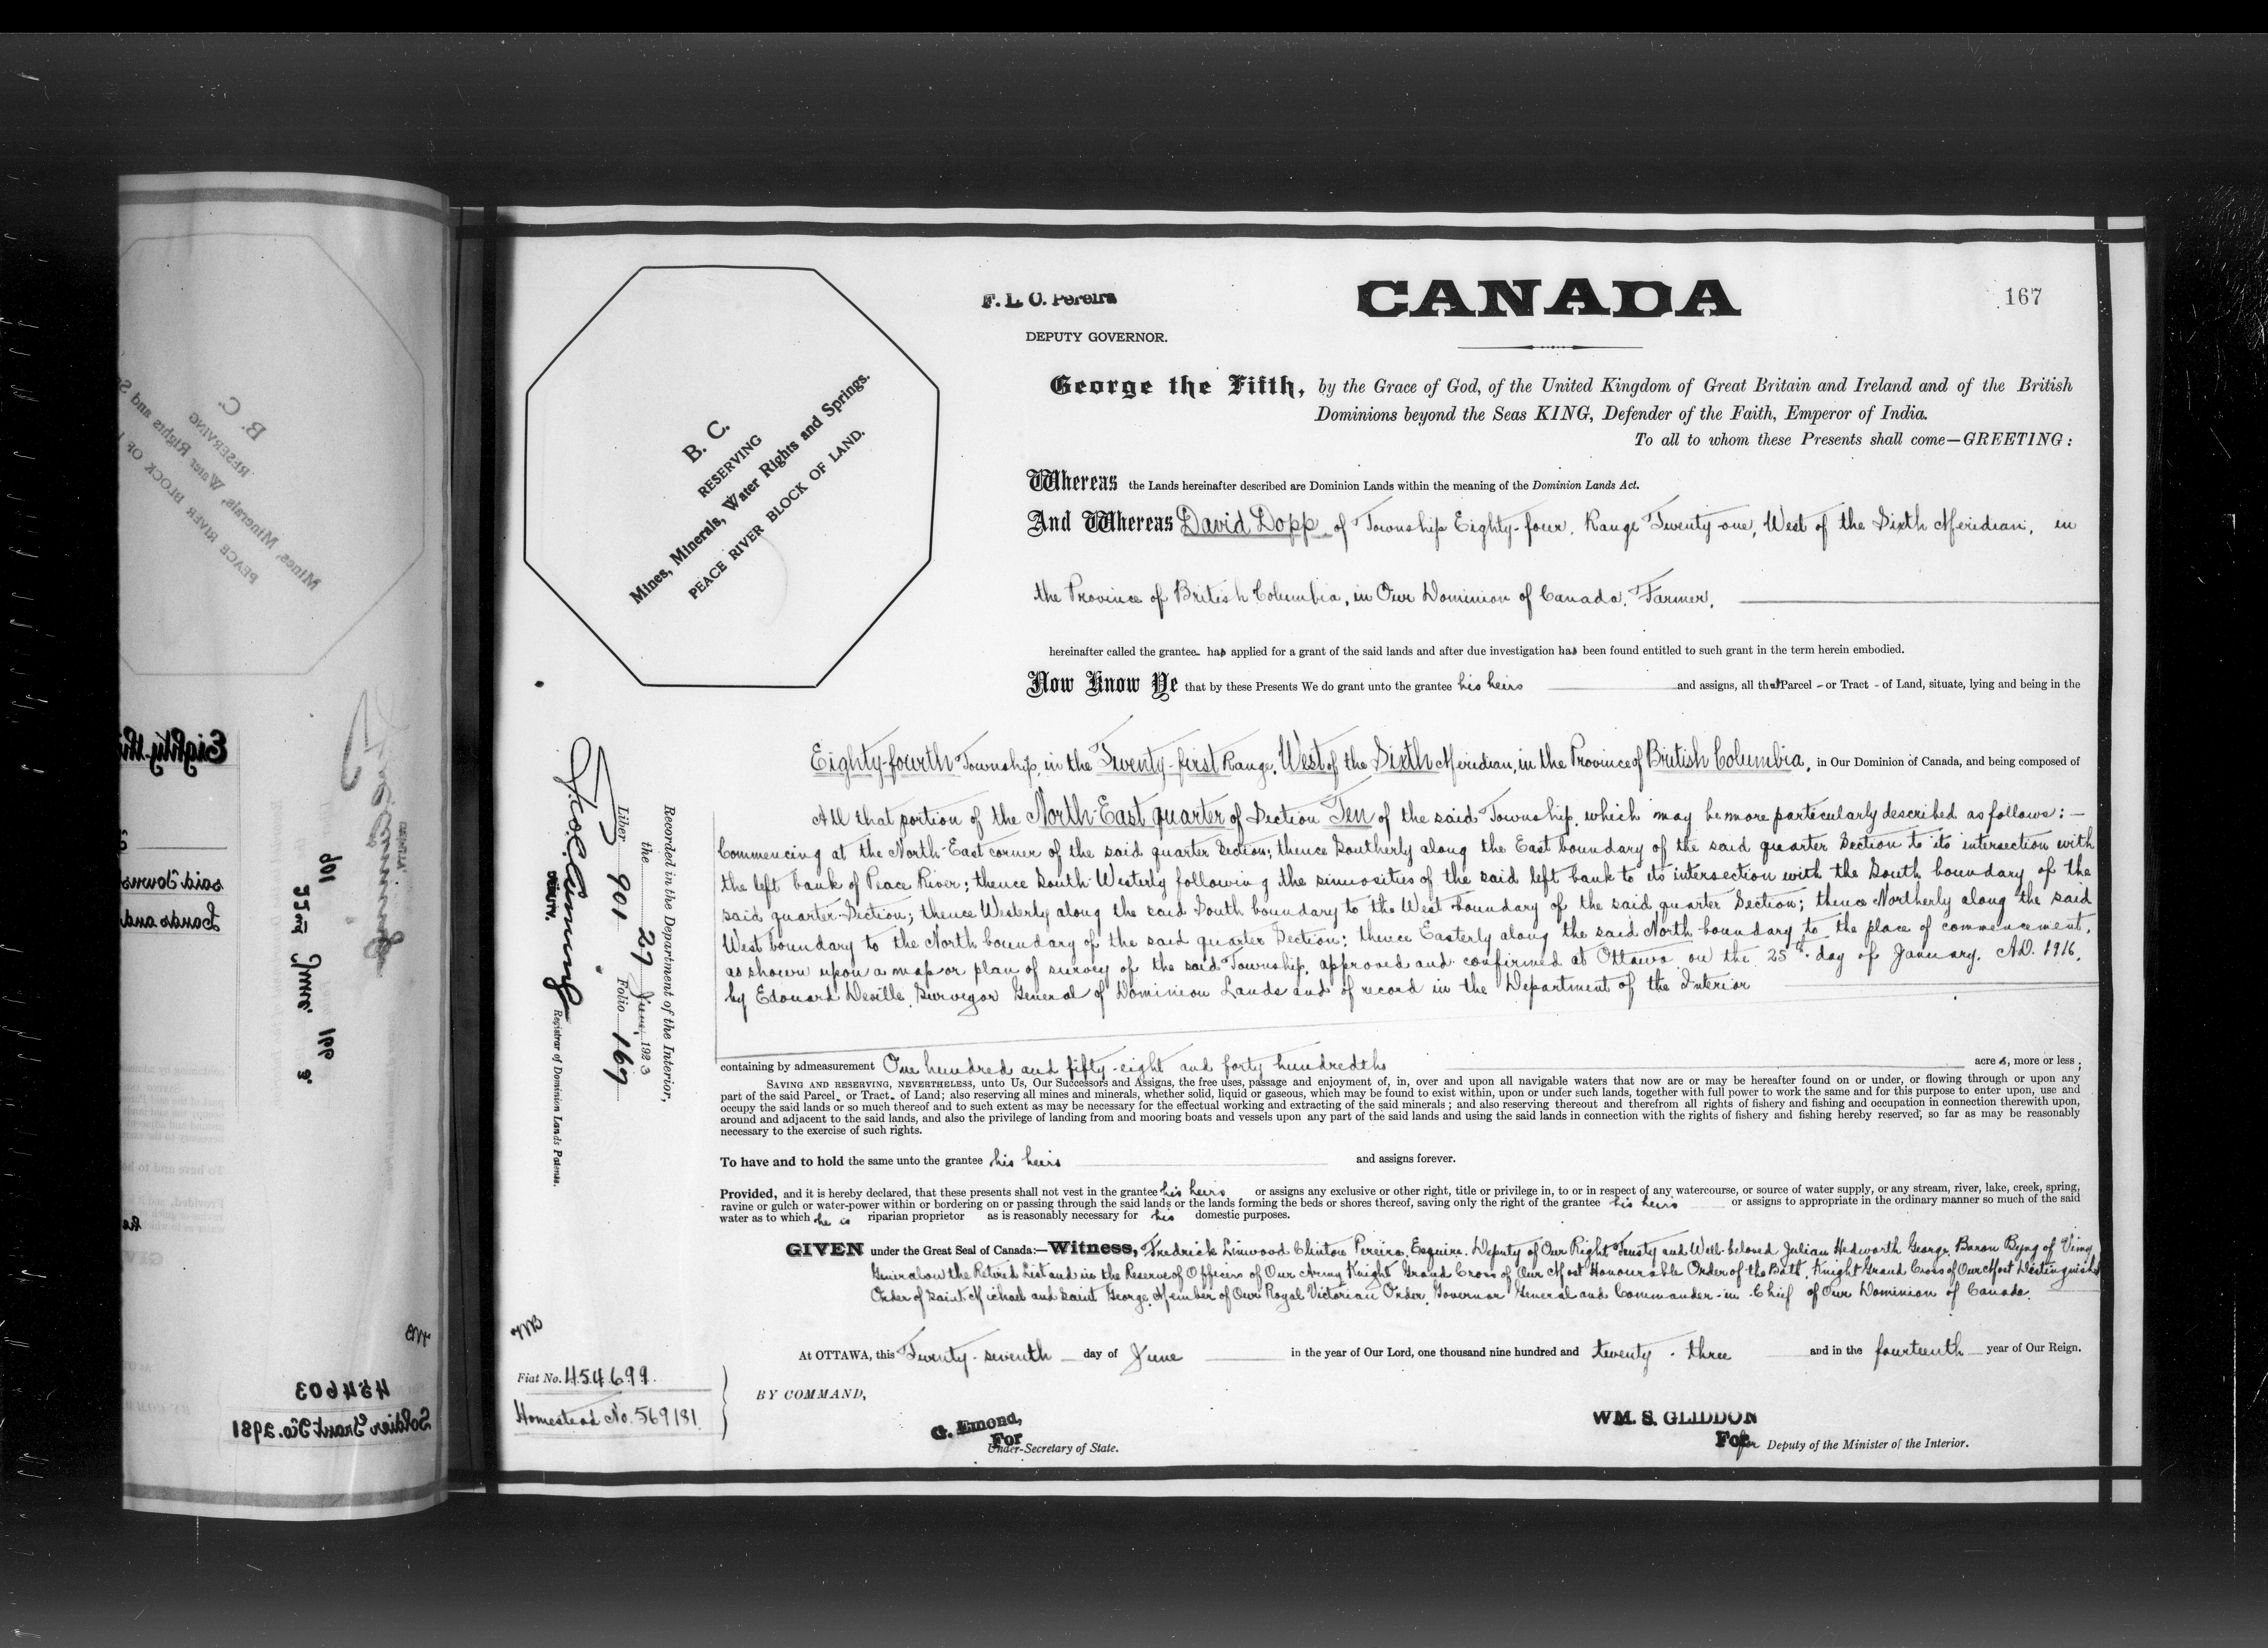 F. L. C. Pereira
DEPUTY GOVERNOR.
CANADA
167
George the Fifth, by the Grace of God, of the United Kingdom of Great Britain and Ireland and of the British
Dominions beyond the Seas KING, Defender of the Faith, Emperor of India.
To all to whom these Presents shall come—GREETING:
B. C.
RESERVING
Mines, Minerals, Water Rights and Springs.
PEACE RIVER BLOCK OF LAND.
Whereas the Lands hereinafter described are Dominion Lands within the meaning of the Dominion Lands Act.
And Whereas David Dopp of Township Eighty-four, Range Twenty-one, West of the Sixth Meridian, in
the Province of British Columbia, in Our Dominion of Canada, Farmer,
hereinafter called the grantee has applied for a grant of the said lands and after due investigation has been found entitled to such grant in the term herein embodied.
Now Know Ye that by these Presents We do grant unto the grantee his heirs and assigns, all that Parcel - or Tract - of Land, situate, lying and being in the
Eighty-fourth Township, in the Twenty-first Range, West of the Sixth Meridian, in the Province of British Columbia, in Our Dominion of Canada, and being composed of
All that portion of the North-East quarter of Section Ten of the said Township, which may be more particularly described as follows:—
Commencing at the North-East corner of the said quarter Section; thence Southerly along the East boundary of the said quarter Section to its intersection with
the left bank of Peace River; thence South-Westerly following the sinuosities of the said left bank to its intersection with the South boundary of the
said quarter-Section; thence Westerly along the said South boundary to the West boundary of the said quarter Section; thence Northerly along the said
West boundary to the North boundary of the said quarter Section; thence Easterly along the said North boundary to the place of commencement,
as shown upon a map or plan of survey of the said Township, approved and confirmed at Ottawa on the 25th day of January, A.D. 1916,
by Edouard Deville, Surveyor General of Dominion Lands and of record in the Department of the Interior
containing by admeasurement One hundred and fifty-eight and forty hundredths acres, more or less;
SAVING AND RESERVING, NEVERTHELESS, unto Us, Our Successors and Assigns, the free uses, passage and enjoyment of, in, over and upon all navigable waters that now are or may be hereafter found on or under, or flowing through or upon any
part of the said Parcel or Tract of Land; also reserving all mines and minerals, whether solid, liquid or gaseous, which may be found to exist within, upon or under such lands, together with full power to work the same and for this purpose to enter upon, use and
occupy the said lands or so much thereof and to such extent as may be necessary for the effectual working and extracting of the said minerals; and also reserving thereout and therefrom all rights of fishery and fishing and occupation in connection therewith upon,
around and adjacent to the said lands, and also the privilege of landing from and mooring boats and vessels upon any part of the said lands and using the said lands in connection with the rights of fishery and fishing hereby reserved, so far as may be reasonably
necessary to the exercise of such rights.
To have and to hold the same unto the grantee his heirs and assigns forever.
Provided, and it is hereby declared, that these presents shall not vest in the grantee his heirs or assigns any exclusive or other right, title or privilege in, to or in respect of any watercourse, or source of water supply, or any stream, river, lake, creek, spring,
ravine or gulch or water-power within or bordering on or passing through the said lands or the lands forming the beds or shores thereof, saving only the right of the grantee his heirs or assigns to appropriate in the ordinary manner so much of the said
water as to which he is riparian proprietor as is reasonably necessary for his domestic purposes.
GIVEN under the Great Seal of Canada:—Witness, Fredrick Linwood Clinton Pereira, Esquire, Deputy of Our Right Trusty and Well-beloved Julian Hedworth George, Baron Byng of Vimy
General on the Retired List and in the Reserve of Officers of Our Army, Knight Grand Cross of Our Most Honourable Order of the Bath, Knight Grand Cross of Our Most Distinguished
Order of Saint Michael and Saint George, Member of Our Royal Victorian Order, Governor General and Commander-in-Chief of Our Dominion of Canada.
At OTTAWA, this Twenty-seventh day of June in the year of Our Lord, one thousand nine hundred and twenty-three and in the fourteenth year of Our Reign.
BY COMMAND,
G. Emond,
For
Under-Secretary of State.
WM. S. GLIDDON
For for Deputy of the Minister of the Interior.
Recorded in the Department of the Interior,
the 27 June, 1923
Liber 901 Folio 167
DEPUTY. Registrar of Dominion Lands Patents.
Fiat No. 454699.
Homestead No. 569181
B. C.
RESERVING
Mines, Minerals, Water Rights and S
PEACE RIVER BLOCK OF
901
22nd June 166
3
said Towns
Lands and
454603
Soldier Grant No. 2981